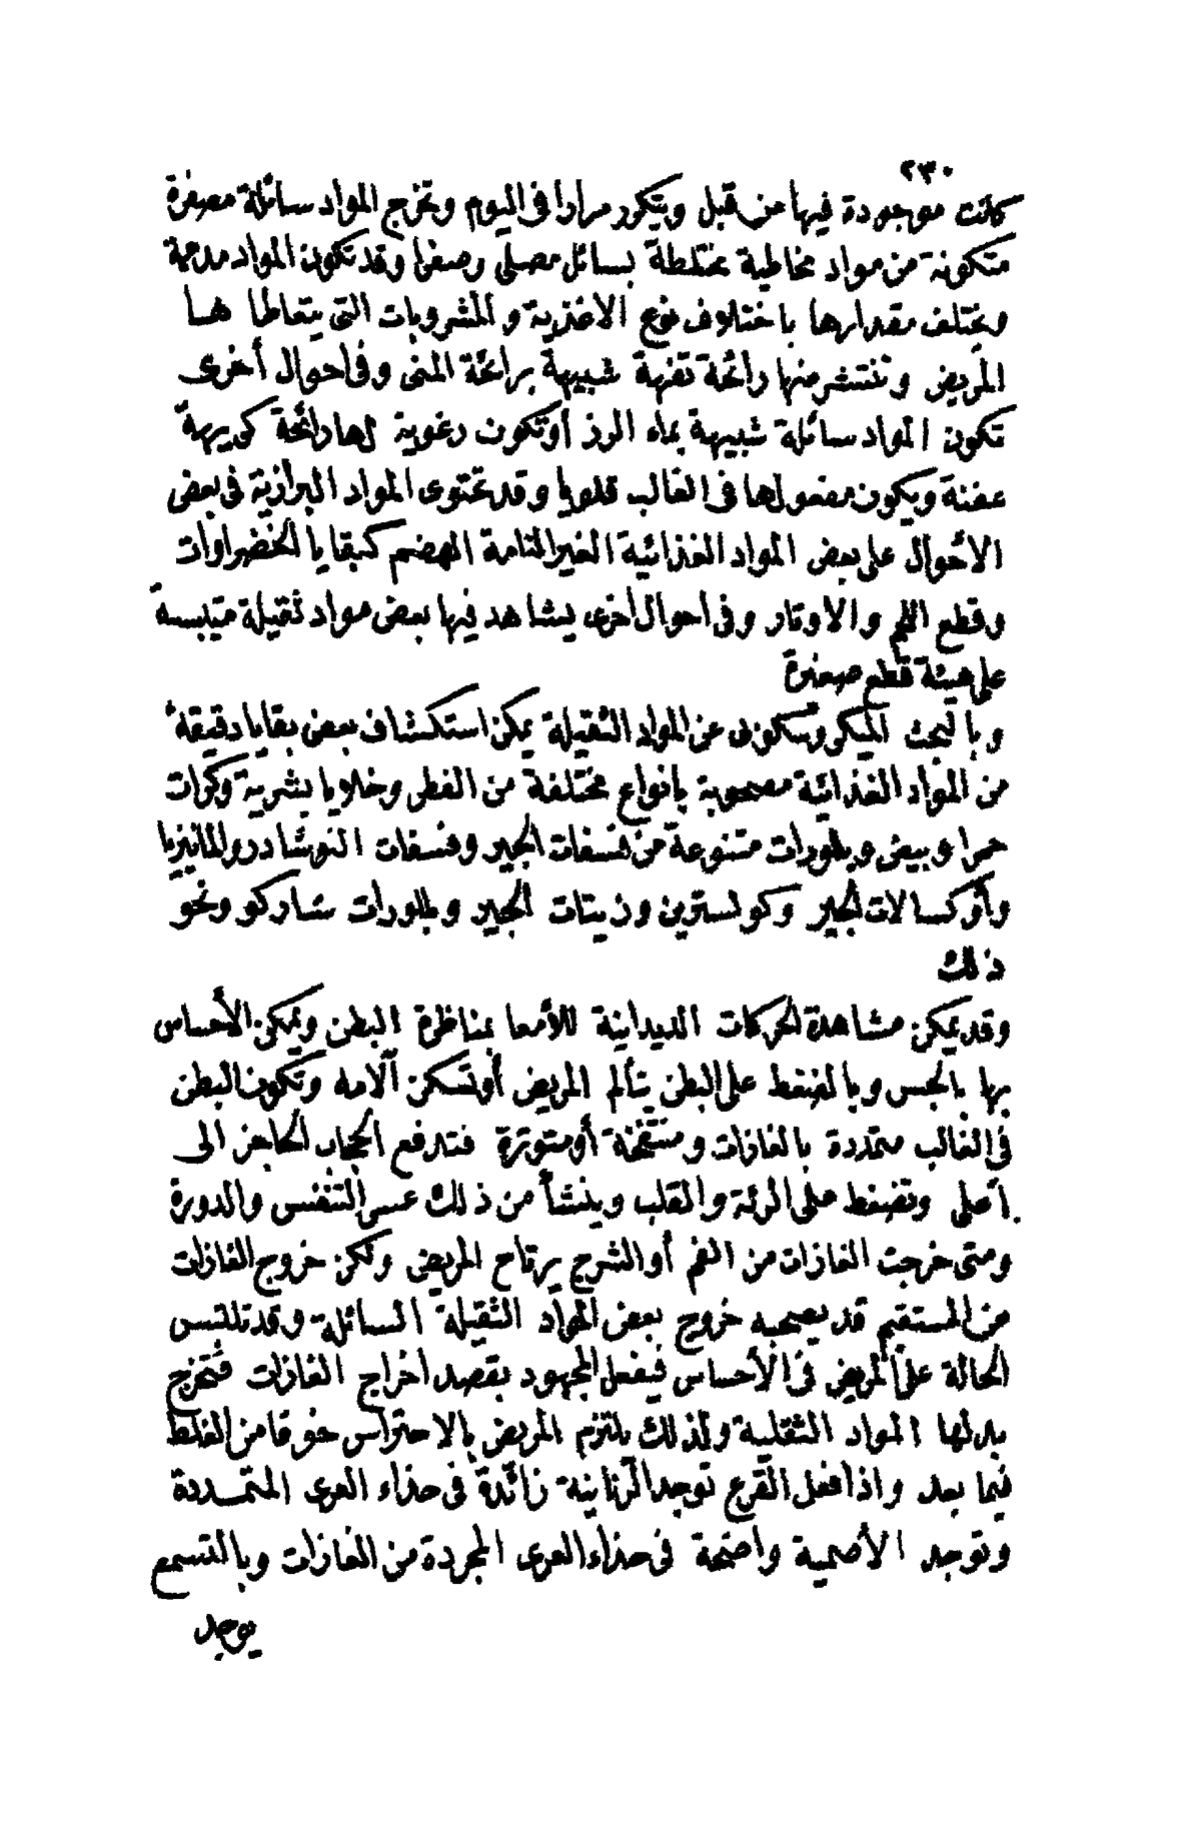 ٢٣٠
كانت موجودة فيها من قبل ويتكرر مرارا فى اليوم وتخرج المواد سائلة مصفرة
متكونة من مواد مخاطية مختلطة بسائل مصلى وصفرا وقد تكون المواد مدممة
ويختلف مقدارها باختلاف نوع الاغذية والمشروبات التى يتعاطاها
المريض وتنتشر منها رائحة تفهة شبيهة برائحة المنى وفى احوال أخرى
تكون المواد سائلة شبيهة بماء الرز أوتكون رغوية لها رائحة كريهة
عفنة ويكون مفعولها فى الغالب قلويا وقد تحتوى المواد البرازية فى بعض
الاحوال على بعض المواد الغذائية الغير التامة الهضم كبقايا الخضراوات
وقطع اللحم والاوتار وفى احوال اخرى يشاهد فيها بعض مواد ثقيلة متيبسة
على هيئة قطع صغيرة
وبالبحث الميكروسكوبى عن المواد الثقيلة يمكن استكشاف بعض بقايا دقيقة
من المواد الغذائية مصحوبة بانواع مختلفة من الفطر وخلايا بشرية وكرات
حمرا وبيض وبلورات متنوعة من فسفات الجير وفسفات النوشادر والمانيزيا
وأوكسالات الجير وكولسترين وزيتات الجير وبلورات شاركو ونحو
ذلك
وقد يمكن مشاهدة الحركات الديدانية للأمعا بمناظرة البطن ويمكن الأحساس
بها بالجس وبالضغط على البطن يتألم المريض أوتسكن آلامه وتكون البطن
فى الغالب متمددة بالغازات ومنتفخة أومتوترة فتدفع الحجاب الحاجز الى
أعلى وتضغط على الرئة والقلب وينشأ من ذلك عسر التنفس والدورة
ومتى خرجت الغازات من الفم أوالشرج يرتاح المريض ولكن خروج الغازات
من المستقيم قد يصحبه خروج بعض المواد الثقيلة السائلة وقد تلتبس
الحالة على المريض فى الأحساس فيفعل المجهود بقصد اخراج الغازات فتخرج
بدلها المواد الثقلية ولذلك يلتزم المريض بالاحتراس خوفا من الغلط
فيما بعد واذا فعل القرع توجد الرنانية زائدة فى حذاء العرى المتمددة
وتوجد الأصمية واضحة فى حذاء العرى المجردة من الغازات وبالتسمع
يوجد